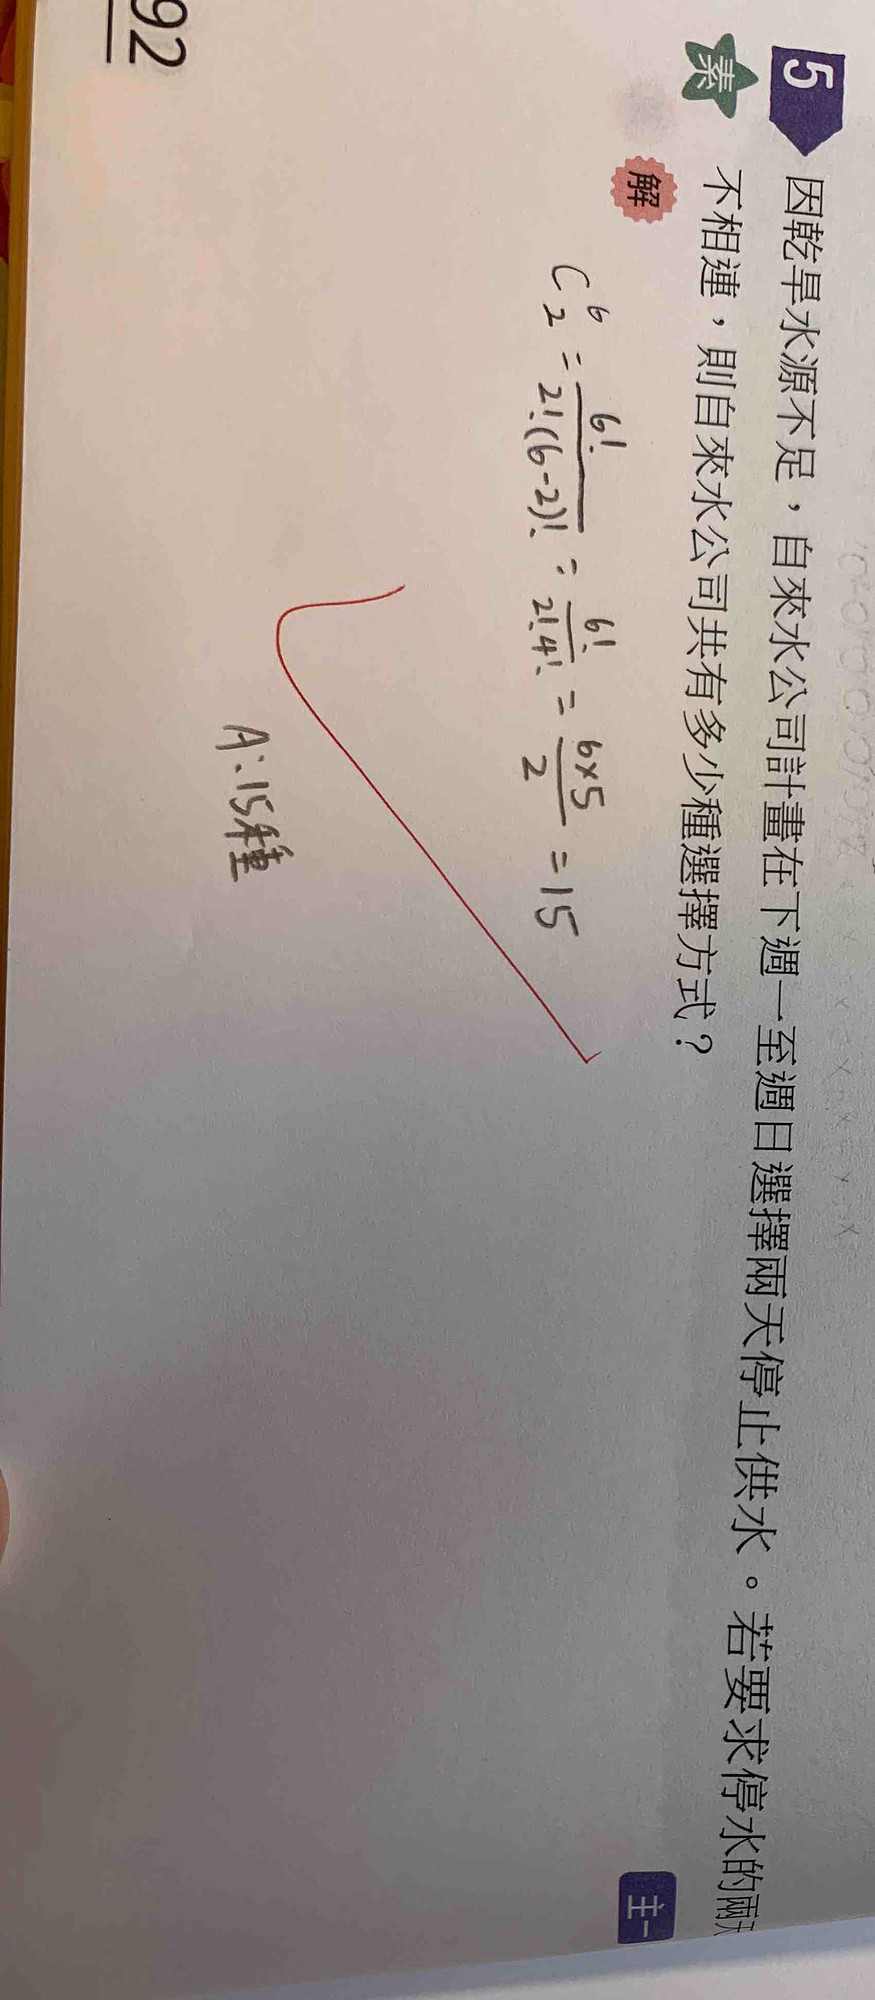 5 因乾旱水源不足，自來水公司計畫在下週一至週日選擇兩天停止供水。若要求停水的兩天
素 不相連，則自來水公司共有多少種選擇方式？
解
主一
C⁶₂ = 6!/2!(6-2)! = 6!/2!4! = 6×5/2 = 15
A：15種
92